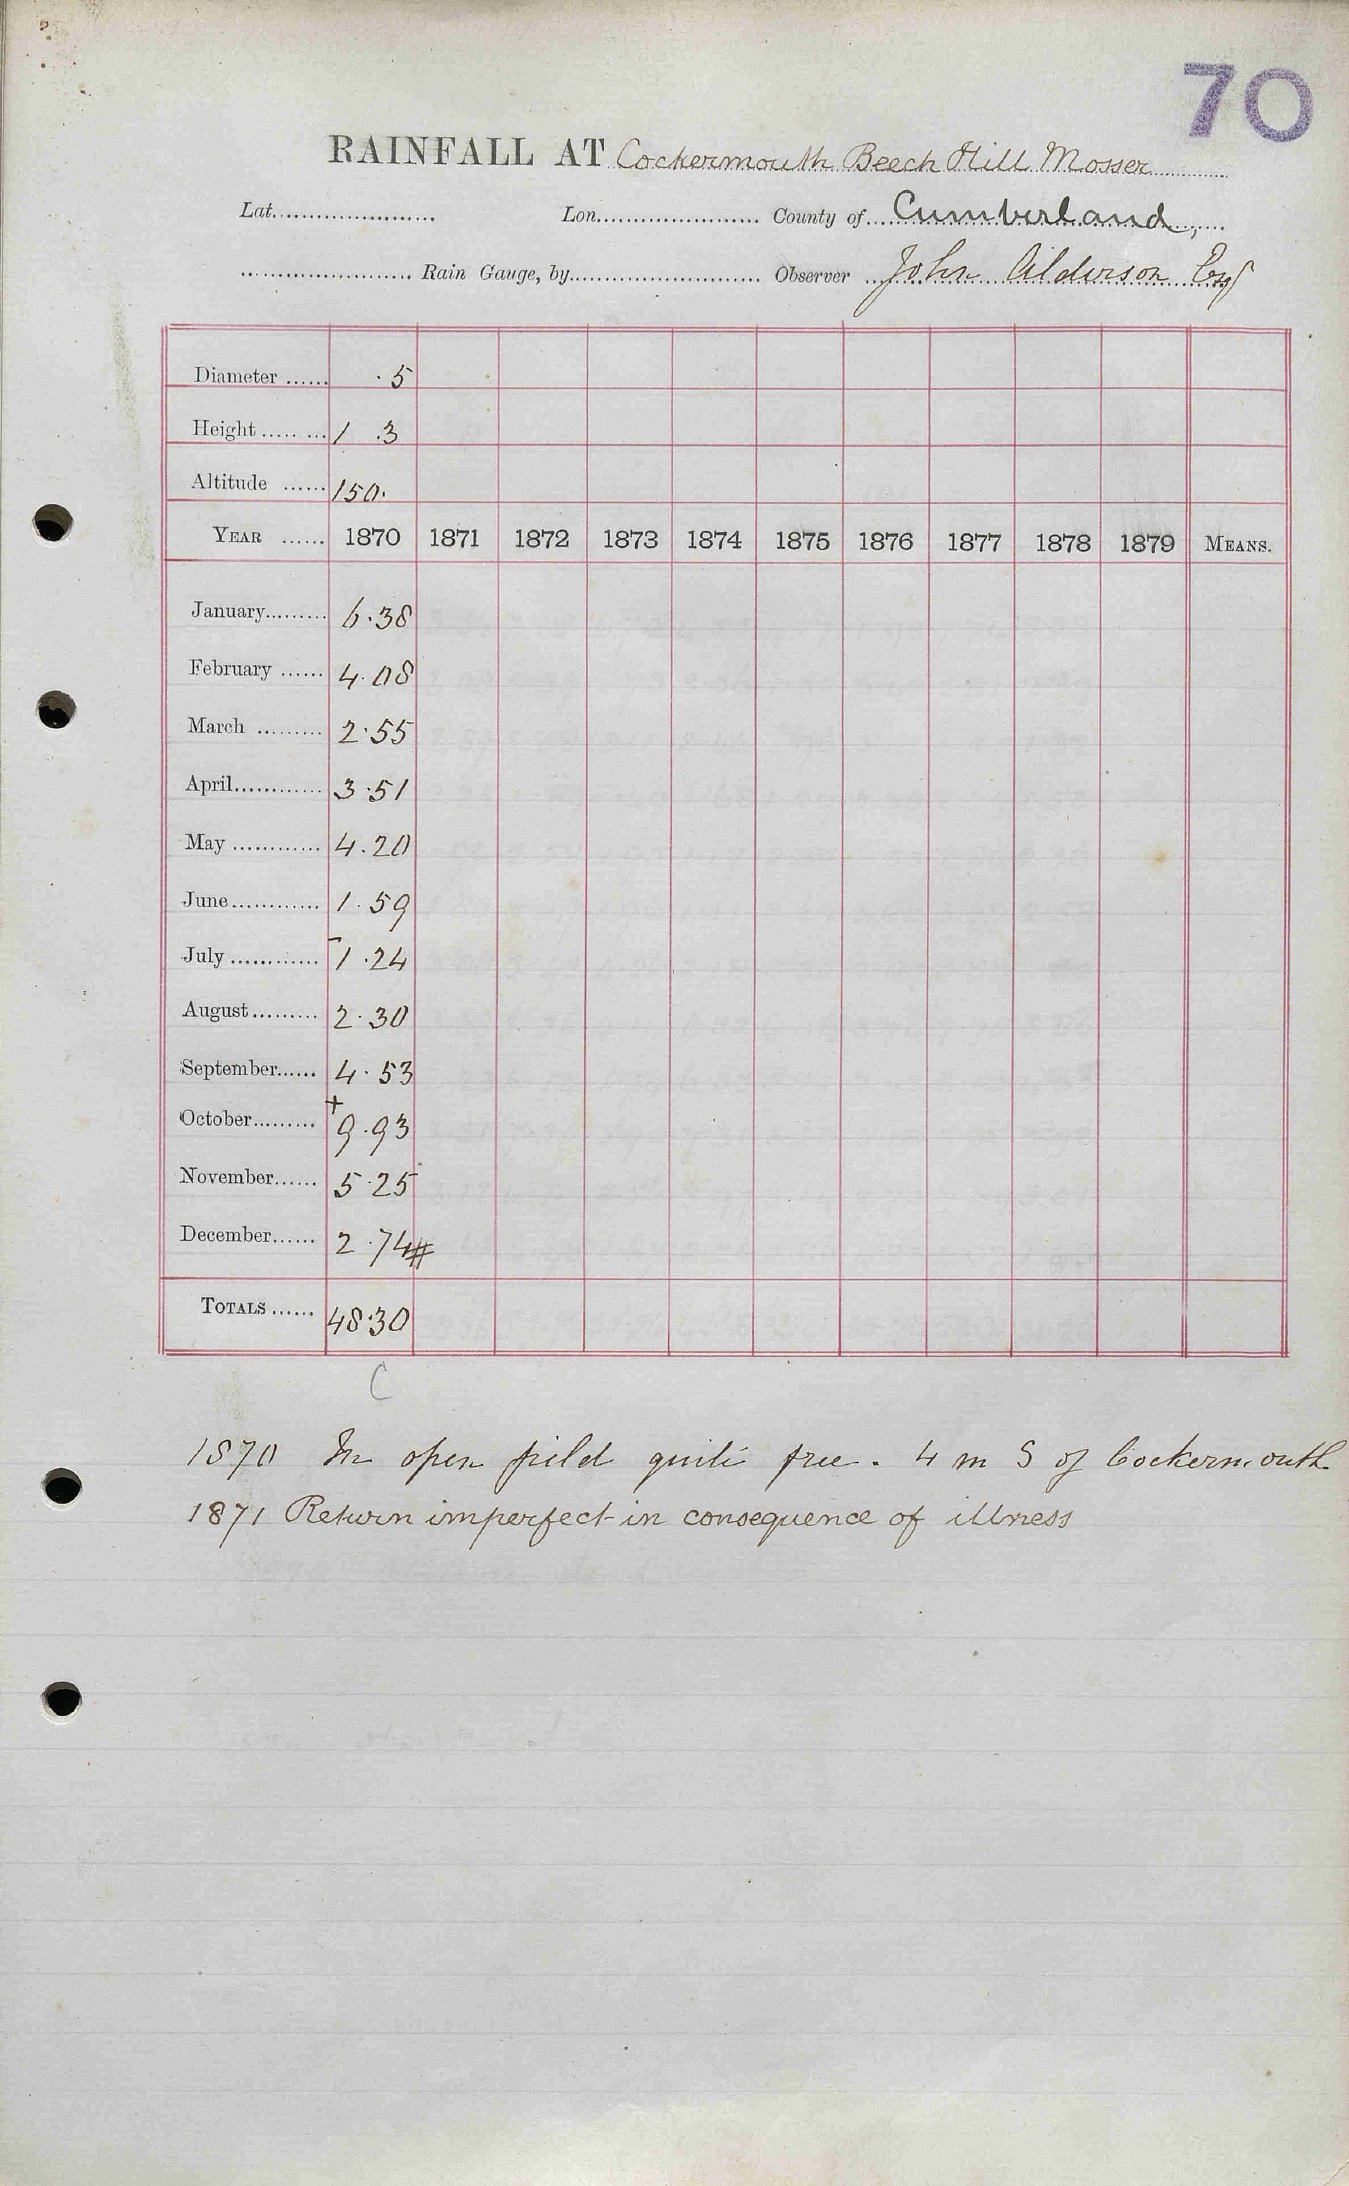 70
RAINFALL AT Cockermouth Beech Hill Mosser
Lat. Lon. County of Cumberland,
Rain Gauge, by Observer John Alderson Esq
Diameter ...... .5
Height ........ 1 .3
Altitude ...... 150.
YEAR ...... 1870 1871 1872 1873 1874 1875 1876 1877 1878 1879 MEANS.
January......... 6.38
February ...... 4.08
March ......... 2.55
April............ 3.51
May ............ 4.20
June............ 1.59
July ............ -1.24
August......... 2.30
September...... 4.53
October......... +9.93
November...... 5.25
December...... 2.74#
TOTALS ...... 48.30
C
1870 In open field quite free. 4 m S of Cockermouth
1871 Return imperfect in consequence of illness